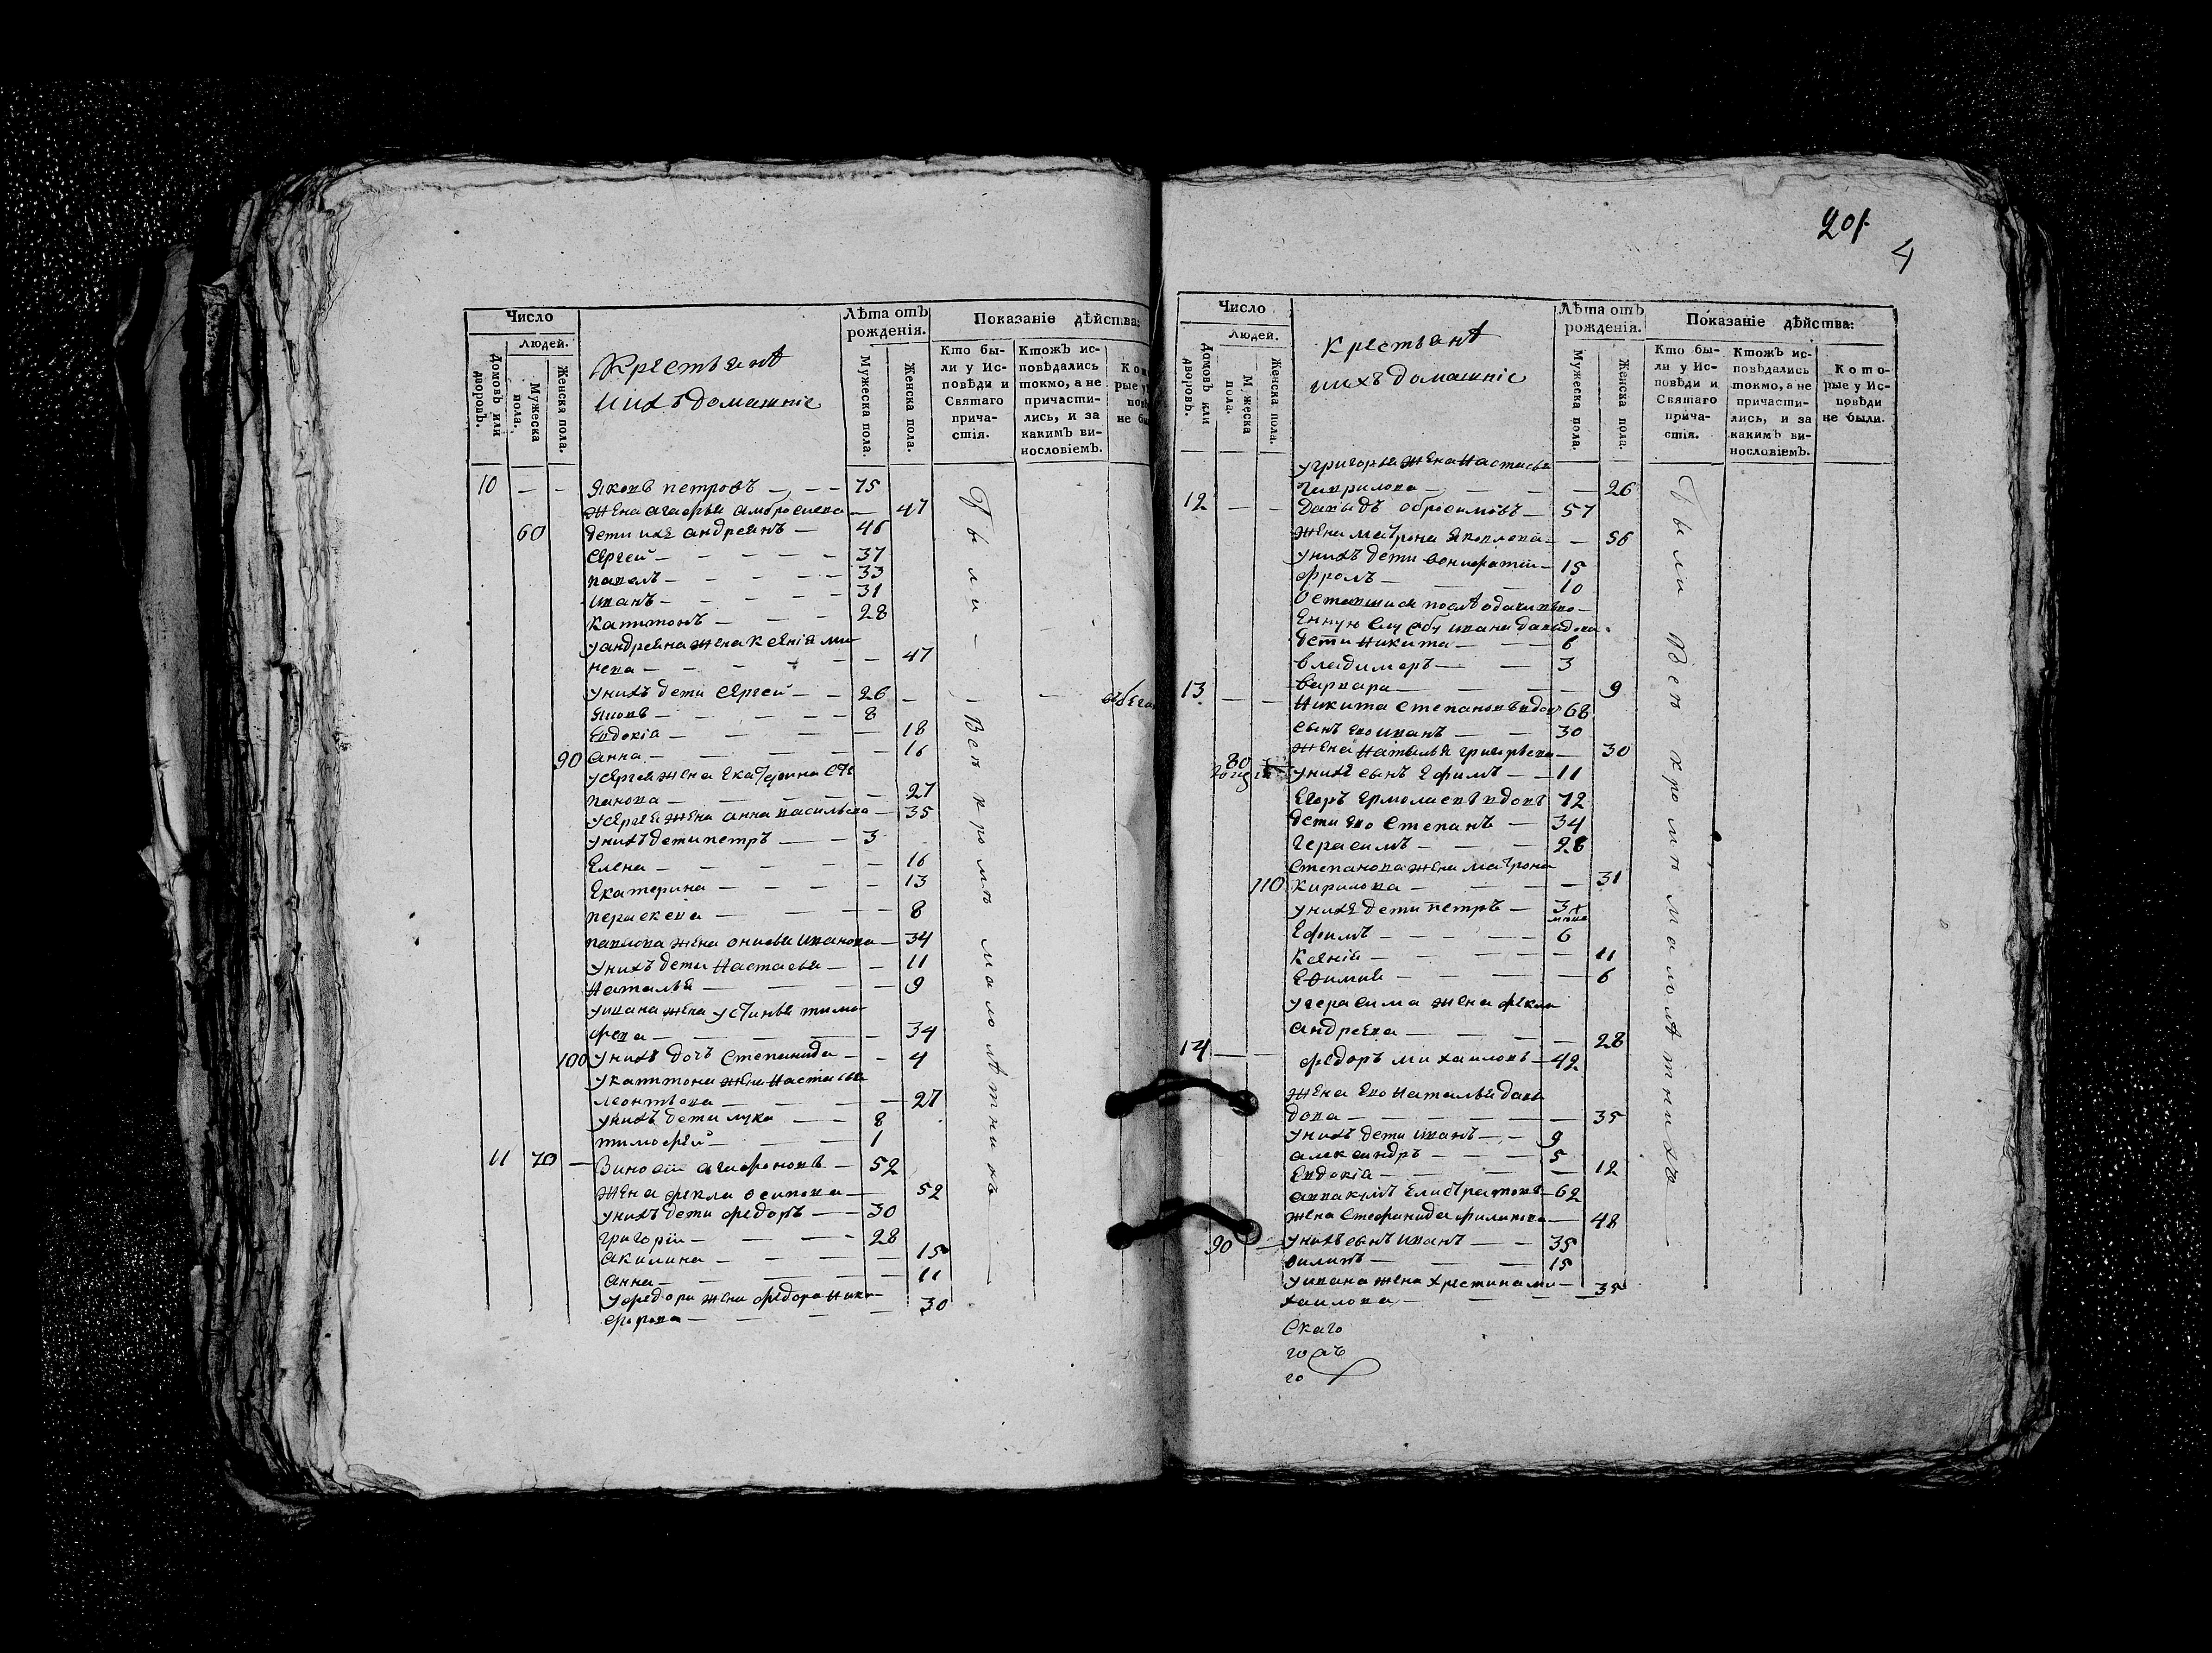 Число
Людей.
Домовъ или дворовъ.
Мужеска пола.
Женска пола.
Крестьянѣ
ииxъ домашніе
Лѣта отъ рожденія.
Мужеска пола.
Женска пола.
Показаніе дѣйства:
Кто бы-
ли у Ис-
повѣди и
Святаго
прича-
стія.
Ктожъ ис-
повѣдались
токмо, а не
причасти-
лись, и за
какимъ ви-
нословіемъ.
10 — — Яковъ петровъ — 75
жена агафья амбросиева — 47
60 дети ихъ андреянъ — 46
Сергей — 37
павелъ — 33
иванъ — 31
капитонъ — 28
у андреяна жена Ксенія ми
неева — 47
унихъ дети Сергей — 26
Яковъ — 8
Евдокіа — 18
90 анна — 16
усергея жена Екатерина сте
панова — 27
усергея жена анна васильева — 35
унихъ дети петръ — 3
Елена — 16
Екатерина — 13
параскева — 8
павлова жена онисья иванова — 34
унихъ дети Настасья — 11
Наталья — 9
уивана жена устинья тимо
феева — 34
100 унихъ дочь Степанида — 4
укапитона жена Настасья
леонтьева — 27
унихъ дети лука — 8
тимофей — 1
11 70 — агафоновъ — 52
жена фекла осипова — 52
унихъ дети федоръ — 30
григорій — 28
акилина — 15
анна — 11
уфедора жена федора ники
форова — 30
Были Всѣ кромѣ малолѣтних
201
4
Число
Людей.
Домовъ или дворовъ.
Мужеска пола.
Женска пола.
Крестьянѣ
ииxъ домашніе
Лѣта отъ рожденія.
Мужеска пола.
Женска пола.
Показаніе дѣйства:
Кто бы-
ли у Ис-
повѣди и
Святаго
прича-
стія.
Ктожъ ис-
повѣдались
токмо, а не
причасти-
лись, и за
какимъ ви-
нословіемъ.
Кото-
рые у Ис-
повѣди
не были.
угригорья жена Настасья
Гаврилова — 26
12 — — Давыдъ обросимовъ — 57
жена матрона Яковлева — 56
унихъ дети вонифатій — 15
фролъ — 10
Оставшися послѣ
ивана давыдова
дети Никита — 6
владимеръ — 3
варвара — 9
13 — — Никита Степановъ вдовъ 68
сынъ его иванъ — 30
жена Наталья григорьева — 30
80 унихъ сынъ Ефимъ — 11
Егоръ Ермолаевъ вдовъ 72
дети его Степанъ — 34
Герасимъ — 28
Степанова жена матрона
110 Кирилова — 31
унихъ дети петръ — 3
Ефимъ — 6
Ксеніа — 11
Ефимия — 6
угерасима жена фекла
андреева — 28
14 — — федоръ михаиловъ — 42
жена его Наталья давы
дова — 35
унихъ дети иванъ — 9
александръ — 5
Евдокіа — 12
аввакумъ Елистратовъ — 62
жена Стефанида филипова — 48
90 — унихъ сынъ иванъ — 35
филипъ — 15
уивана жена хрестина ми
хаилова — 35
Были Всѣ кромѣ малолѣтнихъ
Скаго
го